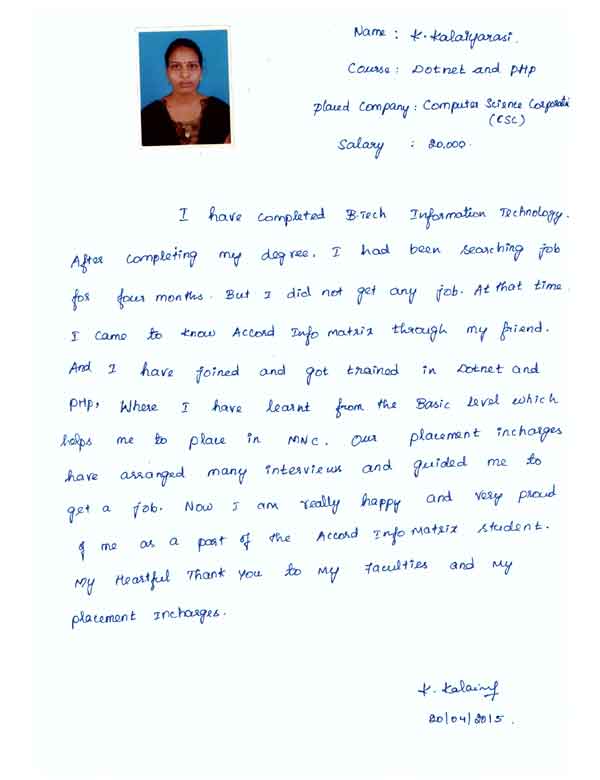 Name : K. Kalaiyarasi.
Course : Dotnet and PHP
Placed Company : Computer Science Corporati
(CSC)
Salary : 20,000.
I have completed B.Tech Information Technology.
After completing my degree. I had been searching job
for four months. But I did not get any job. At that time
I came to know Accord Info matrix through my friend.
And I have joined and got trained in Dotnet and
PHP, Where I have learnt from the Basic Level which
helps me to place in MNC. Our placement incharges
have arranged many interviews and guided me to
get a job. Now I am really happy and very proud
of me as a part of the Accord Info Matrix student.
My Heartful Thank You to My Faculties and My
placement Incharges.
K. Kalaiyarasi
20/04/2015.